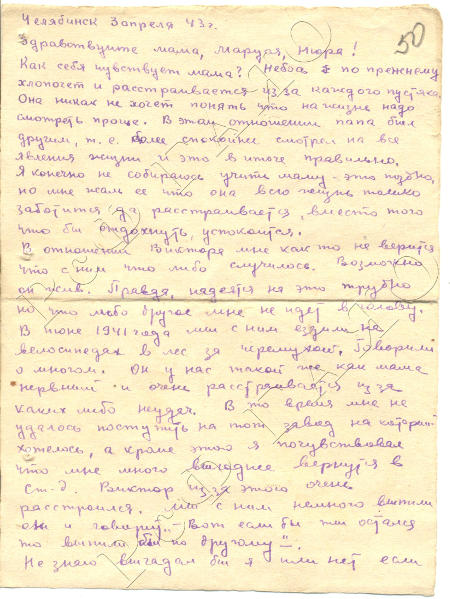 Челябинск 3 апреля 43 г.
50
Здравствуйте мама, Маруся, Нюра!
Как себя чувствует мама? Небось по прежнему
хлопочет и расстраивается из за каждого пустяка.
Она никак не хочет понять что на жизнь надо
смотреть проще. В этом отношении папа был
другим, т. е. более спокойнее смотрел на все
явления жизни и это в итоге правильно.
Я конечно не собираюсь учить маму - это поздно,
но мне жаль ее что она всю жизнь только
заботится да расстраивается, вместо того
что бы отдохнуть, успокоится.
В отношении Виктора мне как то не верится
что с ним что либо случилось. Возможно
он жив. Правда, надеятся на это трудно
но что либо другое мне не идет в голову.
В июне 1941 года мы с ним ездили на
велосипедах в лес за черемухой. Говорили
о многом. Он у нас такой же как мама
нервный и очень расстраивается из за
каких либо неудач. В то время мне не
удалось поступить на тот завод на который
хотелось, а кроме этого я почувствовал
что мне много выгоднее вернутся в
Ст-д. Виктор из за этого очень
расстроился. Мы с ним немного выпили
он и говорит: - "Вот если бы ты остался
то выпили бы по другому".
Не знаю выгадал бы я или нет если